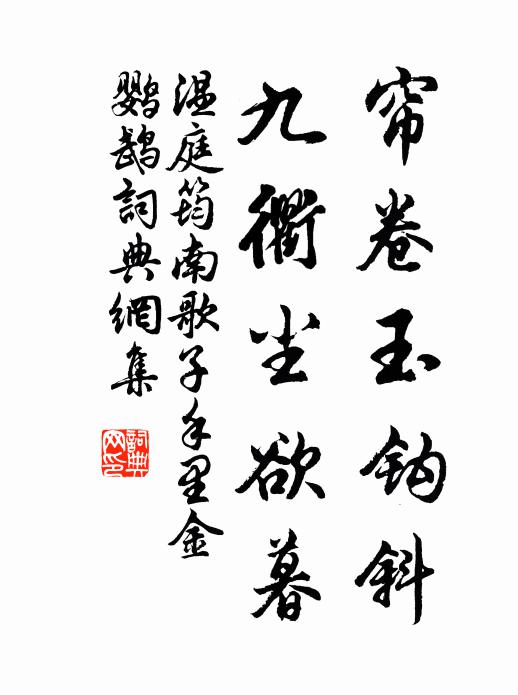 帘卷玉钩斜
九衢尘欲暮
温庭筠南歌子手里金
鹦鹉詞典網集
詞典
网印